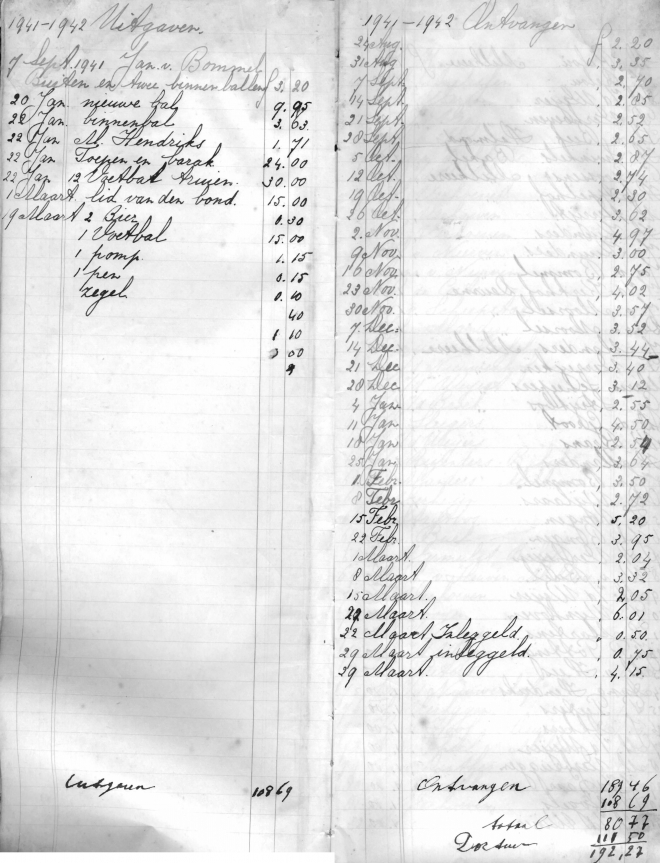 1941-1942 Uitgaven.
7 Sept. 1941 Jan v. Bommel
Buiten en twee binnenballen f 3.20
20 Jan. nieuwe bal 9.95
22 Jan. binnenbal 3.03
22 Jan M. Hendriks 1.71
22 Jan Toepen en barak 24.00
22 Jan 12 Voetbal truien 30.00
1 Maart. lid van den bond. 15.00
19 Maart 2 Bier 0.30
1 Voetbal 15.00
1 pomp. 1.15
1 pen 0.15
zegel 0.10
40
1 10
3 00
9
Uitgaven 108 69
1941-1942 Ontvangen
24 Aug. f 2.20
31 Aug 3.35
7 Sept. 2.70
14 Sept. 2.85
21 Sept. 2.52
28 Sept. 2.65
5 Oct. 2.87
12 Oct. 2.74
19 Oct. 2.30
26 Oct. 3.62
2. Nov. 4.97
9 Nov. 3.00
16 Nov. 2.75
23 Nov. 4.02
30 Nov. 3.57
7 Dec. 3.52
14 Dec. 3.44
21 Dec 3.40
28 Dec 3.12
4 Jan 2.55
11 Jan 4.50
18 Jan 2.54
25 Jan 3.64
1 Febr. 3.50
8 Febr. 2.72
15 Febr. 5.20
22 Febr. 3.95
1 Maart. 2.04
8 Maart 3.32
15 Maart. 2.05
22 Maart. 6.01
22 Maart Inleggeld 0.50
29 Maart inleggeld. 0.45
29 Maart. 4.15
Ontvangen 189 46
108 69
totaal 80 77
111 50
192,27